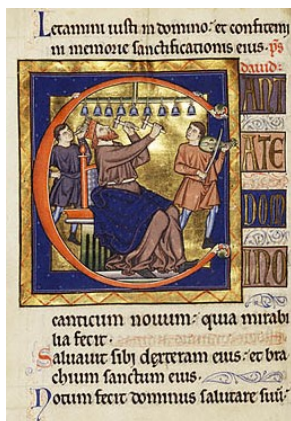 Letamini iusti in domino: et confitemi
ni memorie sanctificationis eius. ps
dauid:
CANT
ATE
DOM
INO
canticum nouum: quia mirabi
lia fecit.
Saluauit sibi dextera eius: et bra
chium sanctum eius.
Notum fecit dominus salutare suū: